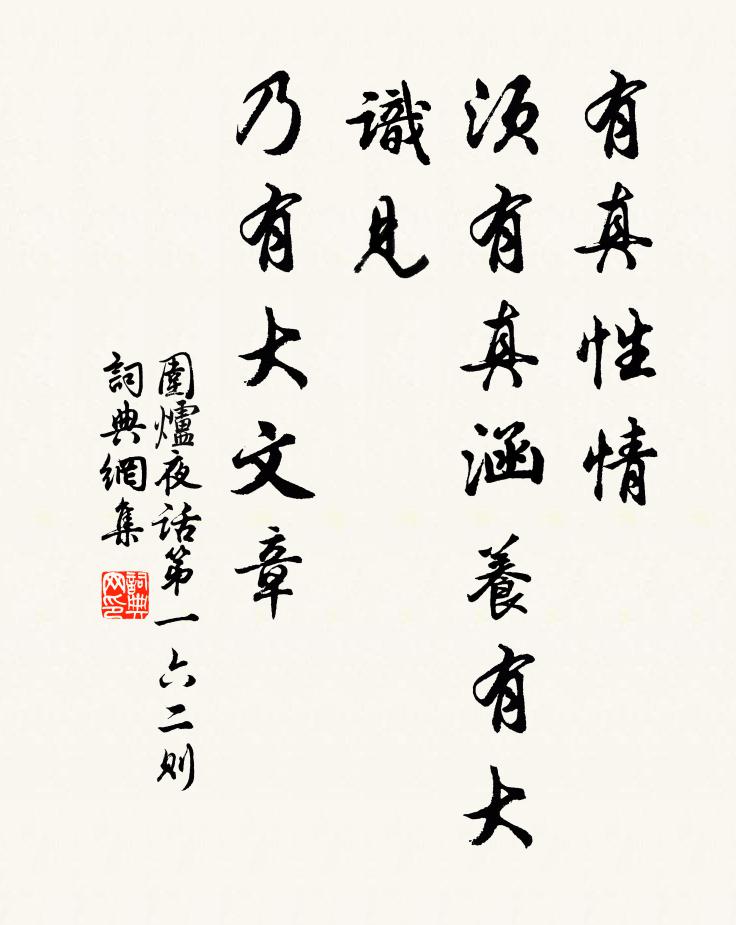 有真性情
須有真涵養有大
識見
乃有大文章
圍爐夜话第一六二则
詞典網集
詞典网印